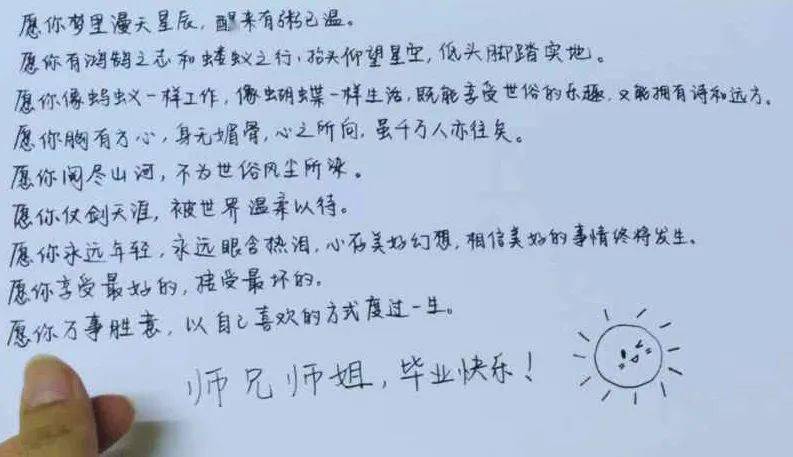 愿你梦里漫天星辰，醒来有粥已温。
愿你有鸿鹄之志和蝼蚁之行，抬头仰望星空，低头脚踏实地。
愿你像蚂蚁一样工作，像蝴蝶一样生活，既能享受世俗的乐趣，又能拥有诗和远方。
愿你胸有方心，身无媚骨，心之所向，虽千万人亦往矣。
愿你阅尽山河，不为世俗风尘所染。
愿你仗剑天涯，被世界温柔以待。
愿你永远年轻，永远眼含热泪，心存美好幻想，相信美好的事情终将发生。
愿你享受最好的，接受最坏的。
愿你万事胜意，以自己喜欢的方式度过一生。
师兄师姐，毕业快乐！